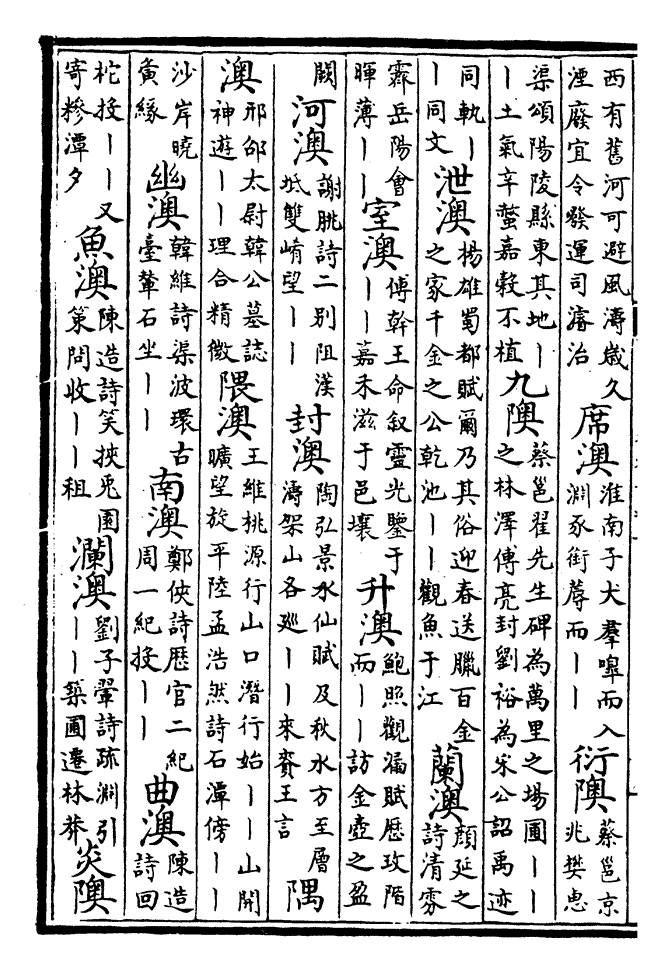 西有舊河可避風濤歲久湮廢宜令發運司濬治席澳淮南子犬羣嘷而入淵豕銜蓐而丨丨衍隩蔡邕京兆樊惠
渠頌陽陵縣東其地丨丨土氣辛螫嘉穀不植九隩蔡邕翟先生碑為萬里之場圃丨丨之林澤傅亮封劉裕為宋公詔禹迹
同軌丨丨同文泄澳楊雄蜀都賦爾乃其俗迎春送臘百金之家千金之公乾池丨丨觀魚于江蘭澳顔延之詩清雰
霽岳陽會暉薄丨丨室澳傅幹王命叙靈光鑒于丨丨嘉禾滋于邑壤升澳鮑照觀漏賦歴玫階而丨丨訪金壺之盈
闕河澳謝朓詩二别阻漢坻雙崤望丨丨封澳陶弘景水仙賦及秋水方至層濤架山各廵丨丨來賚王言隅
澳邢邵太尉韓公墓誌神遊丨丨理合精微隈澳王維桃源行山口潛行始丨丨山開曠望旋平陸孟浩然詩石潭傍丨丨
沙岸曉夤緣幽澳韓維詩渠波環古臺輦石坐丨丨南澳鄭俠詩歴官二紀周一紀投丨丨曲澳陳造詩回
柁投丨丨又寄糝潭夕魚澳陳造詩笑挾兎園策問收丨丨租瀾澳劉子翬詩疏淵引丨丨築圃遷林莽炎隩